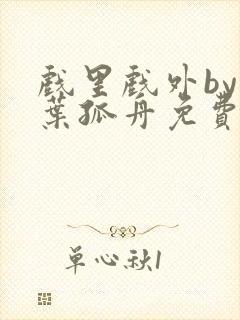 戲里戲外by
葉孤舟免費
單心秋1